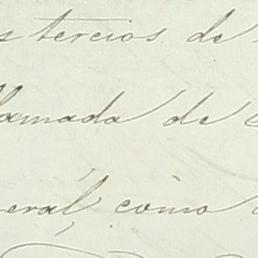 s tercios de
llamada de
neral, cómo